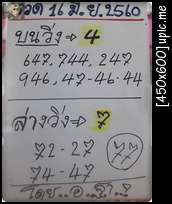 งวด 16 มิ.ย. 2560
บนวิ่ง ⇒ 4
647, 744, 247
946, 47-46-44
ล่างวิ่ง ⇒ 7
72-27 77
74-47
โดย..
[450x600] upic.me